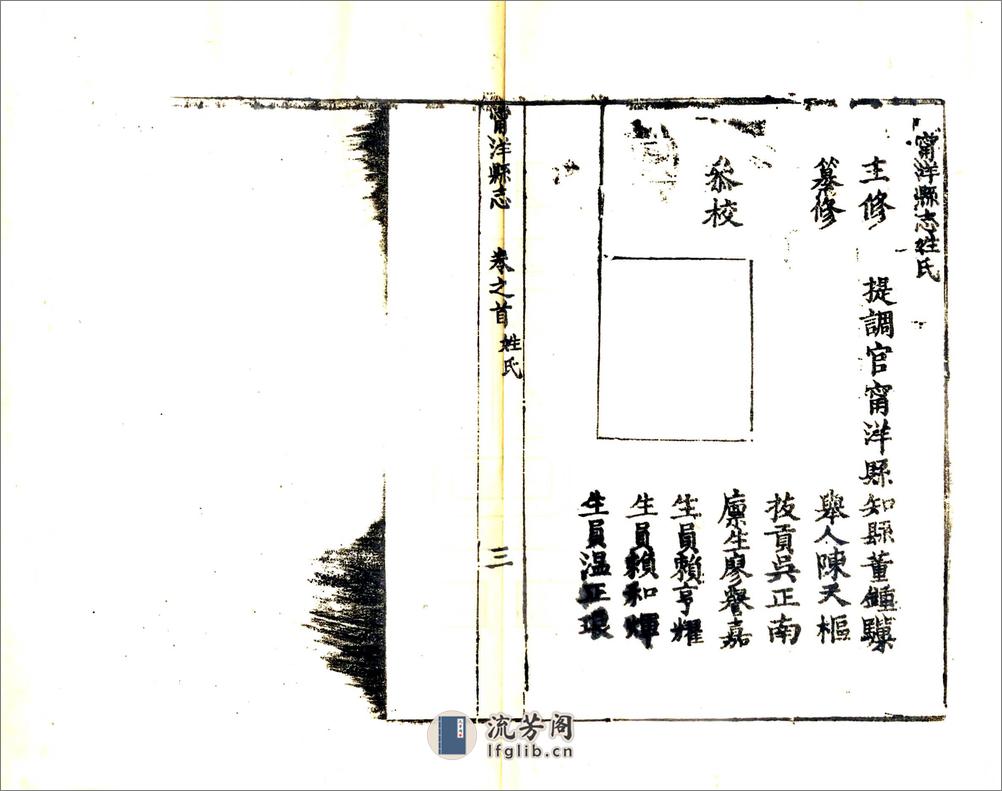 甯洋縣志姓氏
主修
提調官甯洋縣知縣董鍾驥
纂修
舉人陳天樞
拔貢吳正南
叅校
廪生廖譽嘉
生員賴亨耀
生員賴和輝
生員温正
甯洋縣志 卷之首 姓氏 三
流芳阁
lfglib.cn